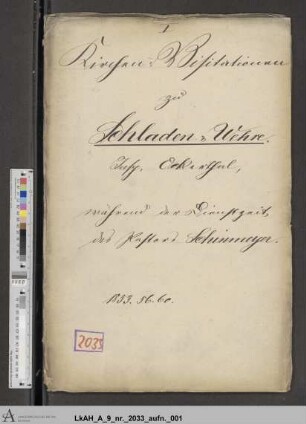 1
Kirchen-Visitationen
zu
Schladen u. Wehre.
Insp. Ockerthal,
während der Dienstzeit
des Pastors Schinmeyer.
1853. 56. 60.
2033
LkAH_A_9_nr._2033_aufn._001